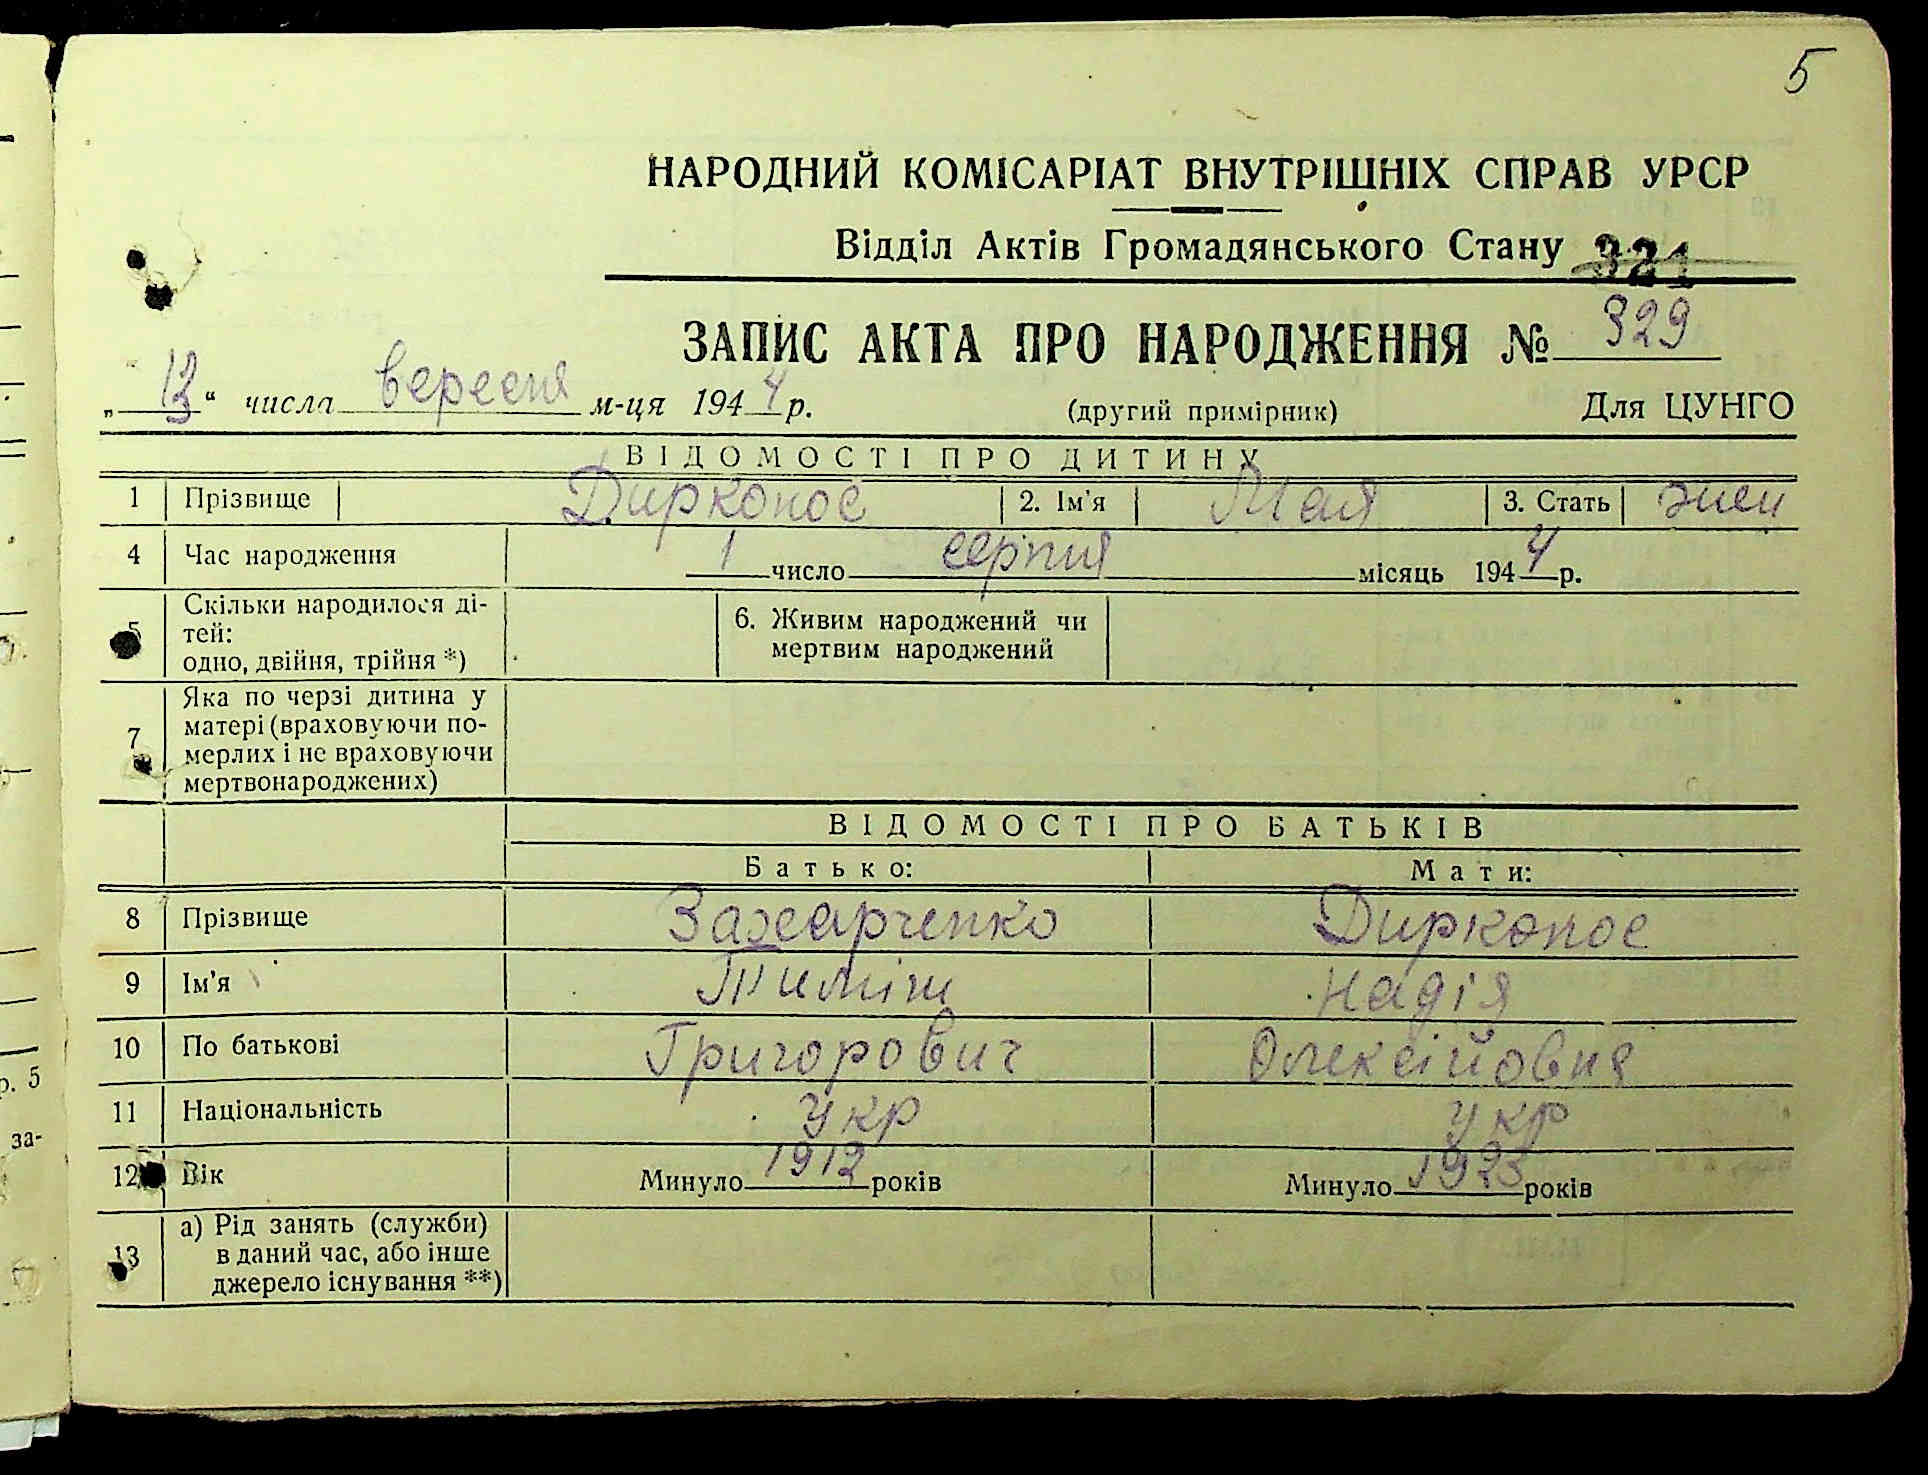 5
НАРОДНИЙ КОМІСАРІАТ ВНУТРІШНІХ СПРАВ УРСР
Відділ Актів Громадянського Стану 321
ЗАПИС АКТА ПРО НАРОДЖЕННЯ № 329
„13“ числа вересня м-ця 1944 р. (другий примірник) Для ЦУНГО
ВІДОМОСТІ ПРО ДИТИНУ
1 Прізвище Дирконос 2. Ім'я Мая 3. Стать жен
4 Час народження 1 число серпня місяць 1944 р.
5 Скільки народилося ді-
тей:
одно, двійня, трійня *)
6. Живим народжений чи
мертвим народжений
7 Яка по черзі дитина у
матері (враховуючи по-
мерлих і не враховуючи
мертвонароджених)
ВІДОМОСТІ ПРО БАТЬКІВ
Батько: Мати:
8 Прізвище Захарченко Дирконос
9 Ім'я Тиміш Надія
10 По батькові Григорович Олексійовна
11 Національність укр укр
12 Вік Минуло 1912 років Минуло 1923 років
13 а) Рід занять (служби)
в даний час, або інше
джерело існування **)
р. 5
за-